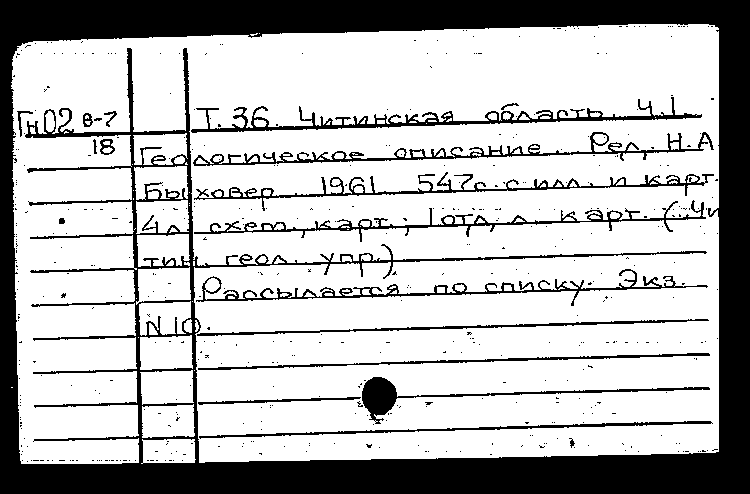 Гн02 в-7 Т. 36. Читинская область. Ч. I.
18 Геологическое описание. Ред. Н.А
Быховер. 1961. 547с. с илл. и карт.
4л. схем., карт.; 1 отд. л. карт. (Чи
тин. геол. упр.)
Рассылается по списку. Экз.
N 10.